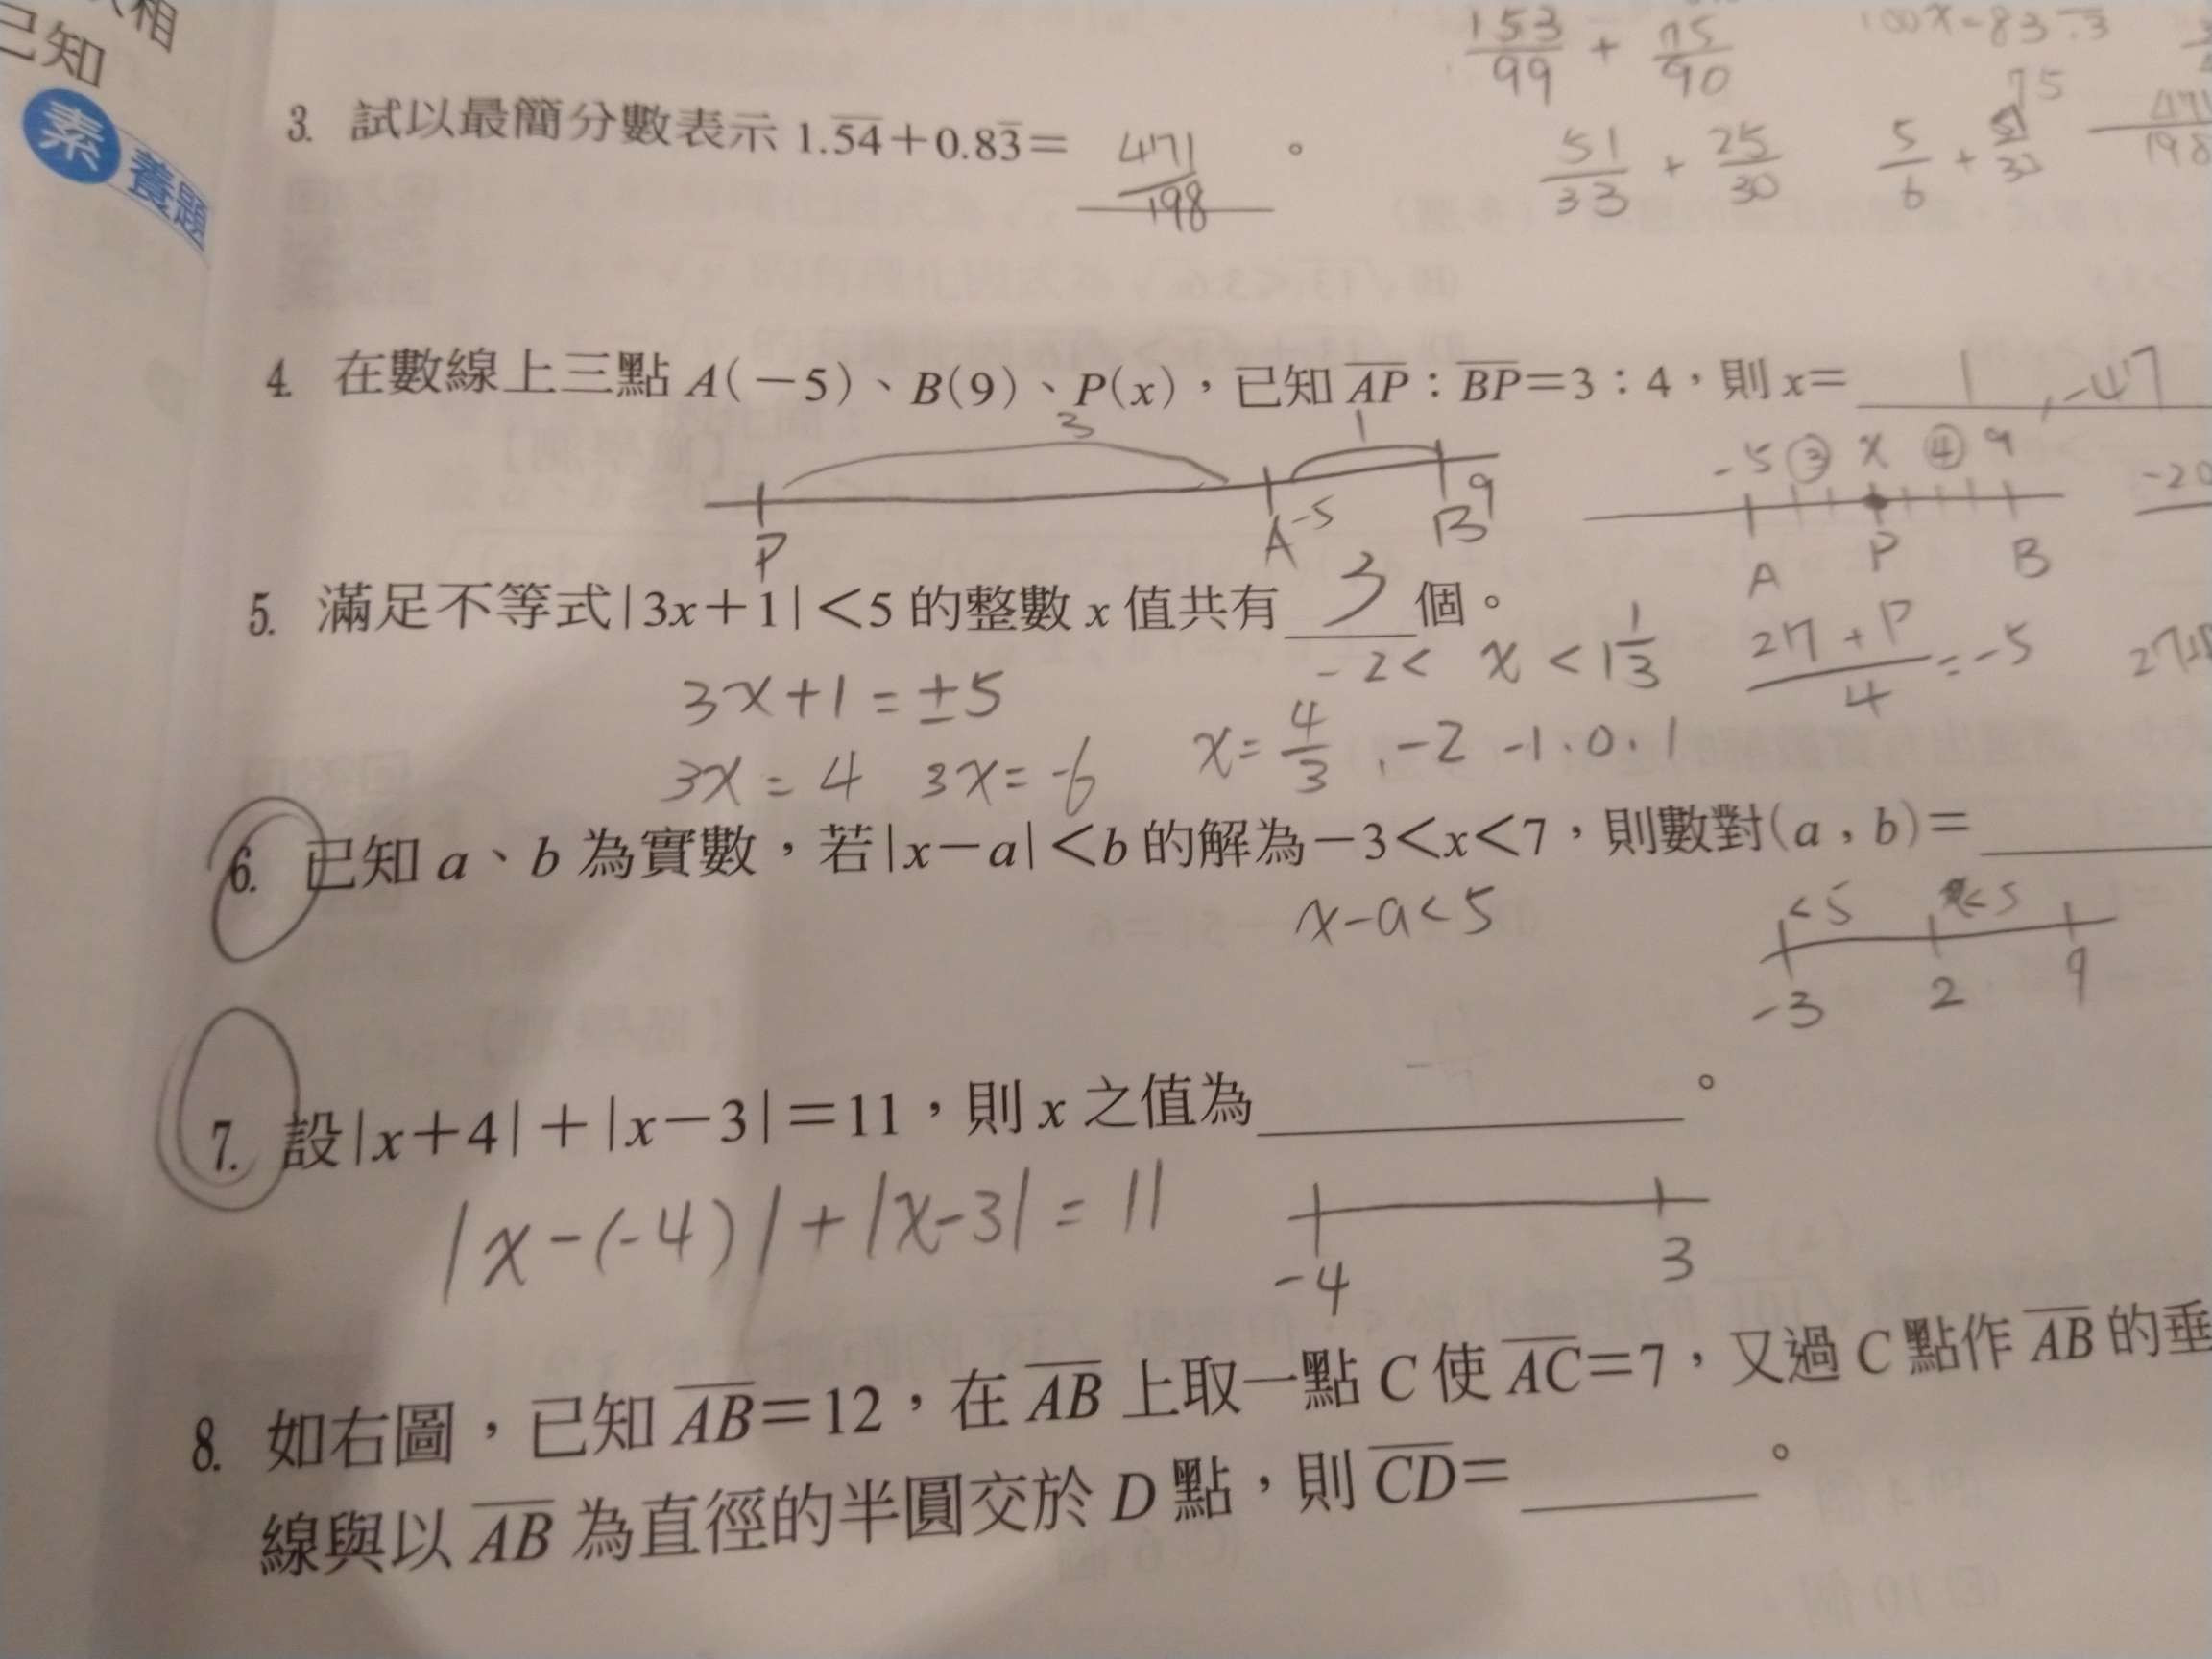 相
已知
素養題
153/99 + 75/90
3. 試以最簡分數表示 1.\overline{54}+0.8\overline{3}= 471/198 。
75
51/33 + 25/30
5/6 + 51/33
471/198
4. 在數線上三點 A(-5)、B(9)、P(x),已知 \overline{AP}:\overline{BP}=3:4,則 x= 1,-47
3 1
P A -5 B 9
-5 ③ x ④ 9
A P B
-20
5. 滿足不等式|3x+1|<5 的整數 x 值共有 3 個。
-2< x <1 1/3
(27+P)/4=-5
3x+1=±5
3x=4 3x=-6 x=4/3,-2 -1.0.1
6. 已知 a、b 為實數,若|x-a|<b 的解為-3<x<7,則數對(a,b)=
x-a<5
<5 <5
-3 2 9
7. 設|x+4|+|x-3|=11,則 x 之值為 。
|x-(-4)|+|x-3|=11
-4 3
8. 如右圖,已知 \overline{AB}=12,在 \overline{AB} 上取一點 C 使 \overline{AC}=7,又過 C 點作 \overline{AB} 的垂
線與以 \overline{AB} 為直徑的半圓交於 D 點,則 \overline{CD}= 。